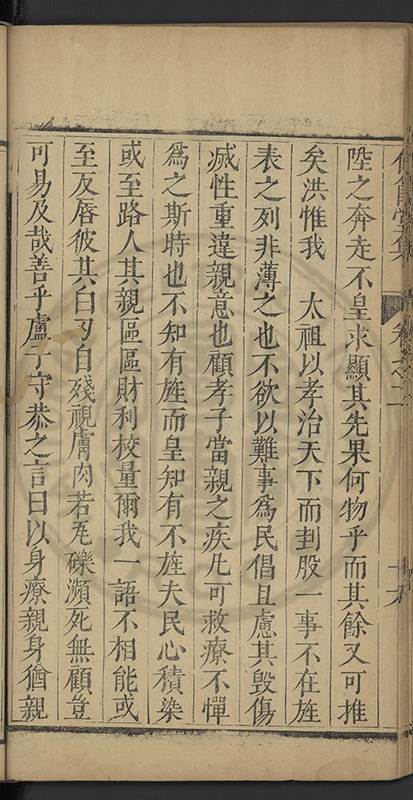 陛之奔走不皇求顯其先果何物乎而其餘又可推
矣洪惟我　太祖以孝治天下而刲股一事不在旌
表之列非薄之也不欲以難事為民倡且慮其毀傷
滅性重違親意也顧孝子當親之疾凡可救療不憚
為之斯時也不知有旌而皇知有不旌夫民心積染
或至路人其親區區財利校量爾我一語不相能或
至反唇彼其白刃自殘視膚肉若瓦礫瀕死無顧豈
可易及哉善乎盧子守恭之言曰以身療親身猶親